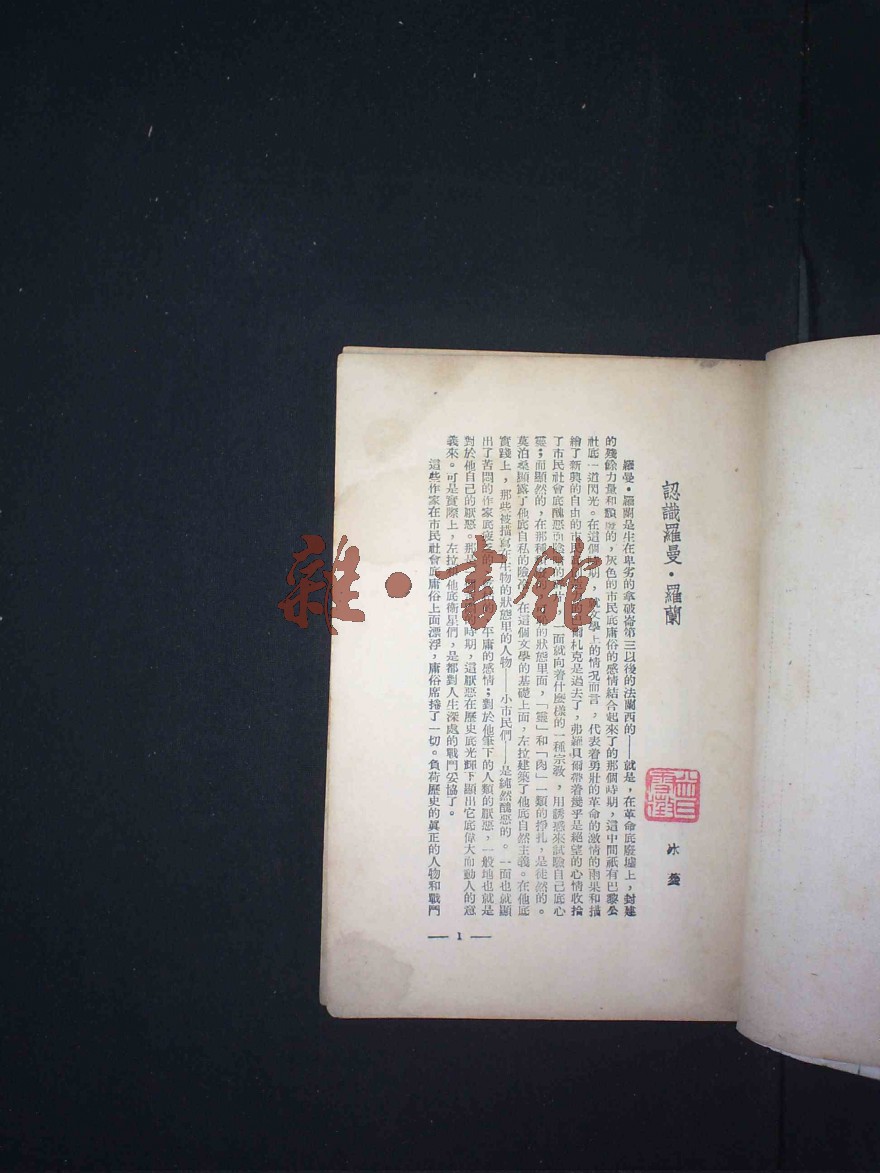 認識羅曼·羅蘭
冰菱
羅曼·羅蘭是生在卑劣的拿破崙第三以後的法蘭西的——就是,在革命底廢墟上,封建
的殘餘力量和的,灰色的市民底庸俗的感情結合起來了的那個時期,這中間祇有巴黎公
社底一道閃光。在這個時期,就文學上的情況而言,代表着勇壯的革命的激情的雨果和描
繪了新興的自由的市民的巴爾札克是過去了,弗羅貝爾帶着幾乎是絕望的心情收拾
了市民社會底醜惡一面就向着什麼樣的一種宗教,用誘惑來試驗自己底心
靈;而顯然的,在那種的狀態里面,「靈」和「肉」一類的掙扎,是徒然的。
莫泊桑顯露了他底自私的陰在這個文學的基礎上面,左拉建築了他底自然主義。在他底
實踐上,那些被描寫在生物的狀態里的人物——小市民們——是純然醜惡的。一面也就顯
出了苦悶的作家底疲的平庸的感情;對於他筆下的人類的厭惡,一般地也就是
對於他自己的厭惡。那時期,這厭惡在歷史底光輝下顯出它底偉大而動人的意
義來。可是實際上,左拉他底衛星們,是都對人生深處的戰鬥妥協了。
這些作家在市民社會底庸俗上面漂浮,庸俗席捲了一切。負荷歷史的眞正的人物和戰鬥
— 1 —
雜·書館